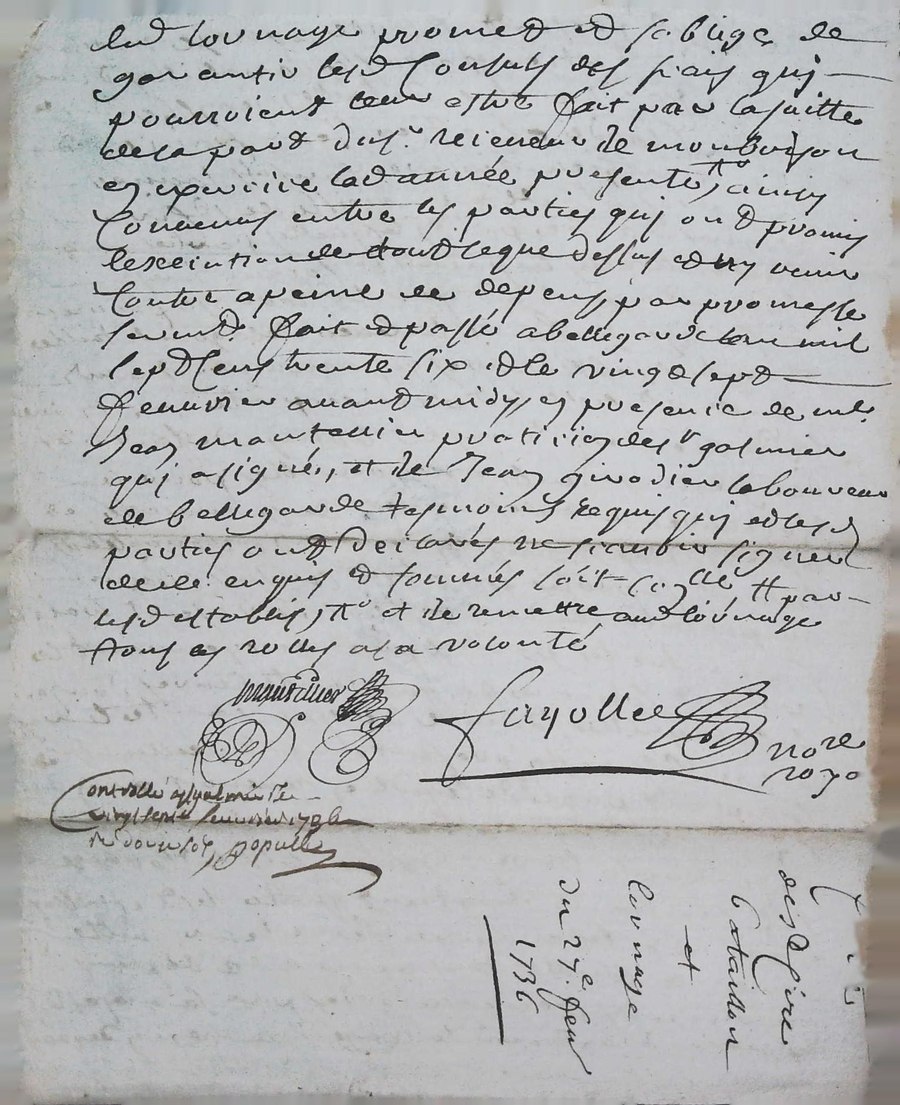 led lournage promet et soblige de
garantir lesd Consuls des frais qui
pourroient leur estre fait par la suitte
de la part du sr. receveur de montbrison
en exercice lad année presente, ainsy
Convenus entre les parties qui ont promis
lexecution de tout ceque dessus et ny venir
Contre a peine de depens par promesse
serment. fait et passé a bellegarde mil
sept Cens trente six et le vingt sept
feuvrier avant midy, en presence de
Jean mantellier praticien de st galmier
qui a signé, et de Jean girodier laboureur
de bellegarde tesmoins requis qui et lesd
parties ont declarés ne scavoir signer
de ce enquis et sommés soit par
lesd establis, et de remettre aud lournage
tous es rolles a sa volonté
mantellier
fayolle
nore
royal
Controllé a st galmier le
vingt sept feuvrier 1736
R douze sols
des Sire
Cataillon
et
lournage
du 27e. feu
1736